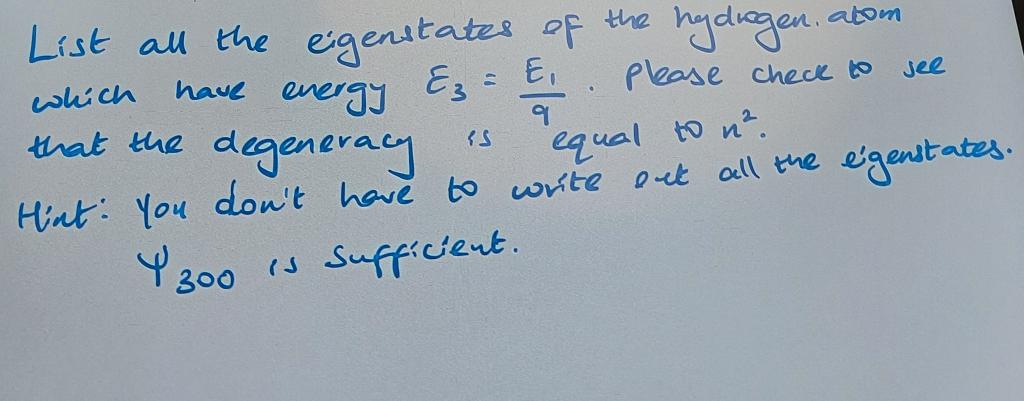 List all the eigenstates of the hydrogen. atom
which have energy E₃ = E₁/9 . Please check to see
that the degeneracy is equal to n².
Hint: You don't have to write out all the eigenstates.
Ψ₃₀₀ is sufficient.